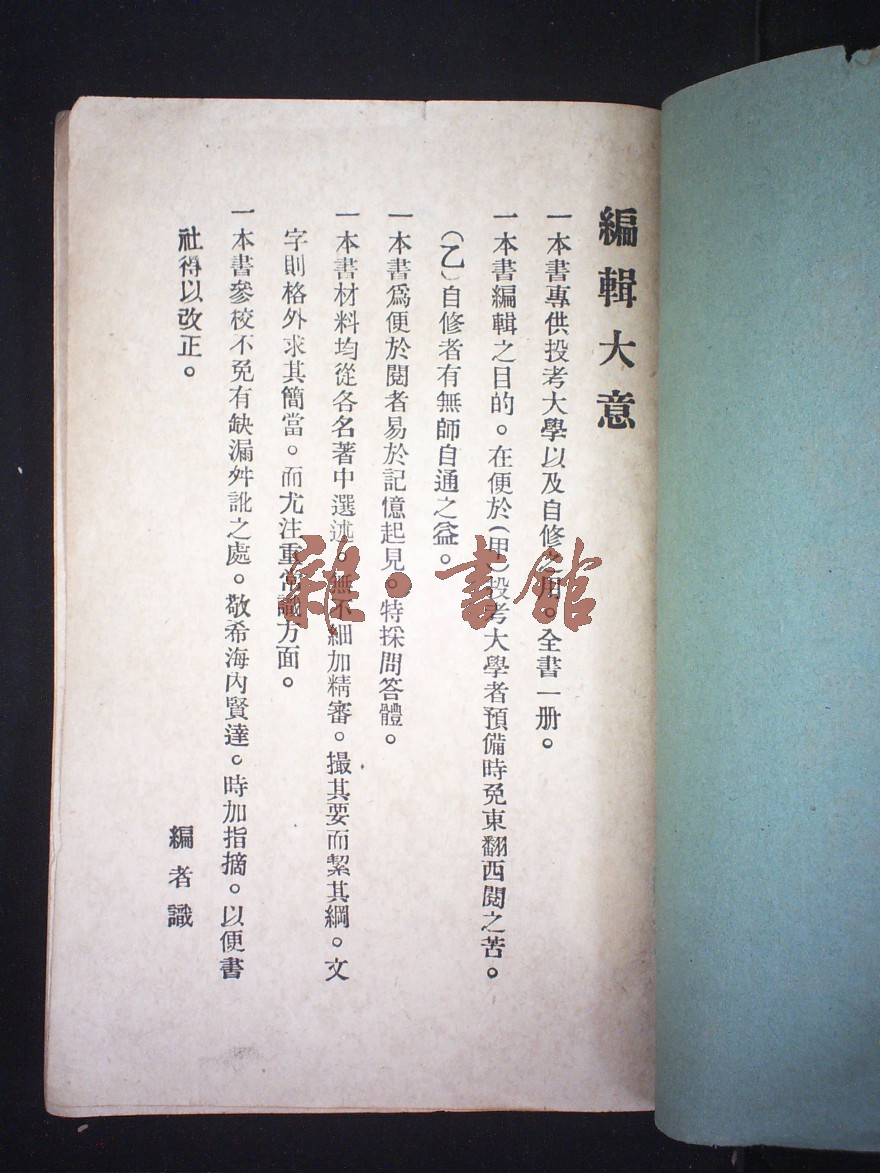 編輯大意
一本書專供投考大學以及自修之用。全書一册。
一本書編輯之目的。在便於(甲)投考大學者預備時免東翻西閱之苦。
(乙)自修者有無師自通之益。
一本書爲便於閱者易於記憶起見。特採問答體。
一本書材料均從各名著中選述。無不細加精審。撮其要而絜其綱。文
字則格外求其簡當。而尤注重常識方面。
一本書參校不免有缺漏舛訛之處。敬希海內賢達。時加指摘。以便書
社得以改正。
編者識
雜·書館